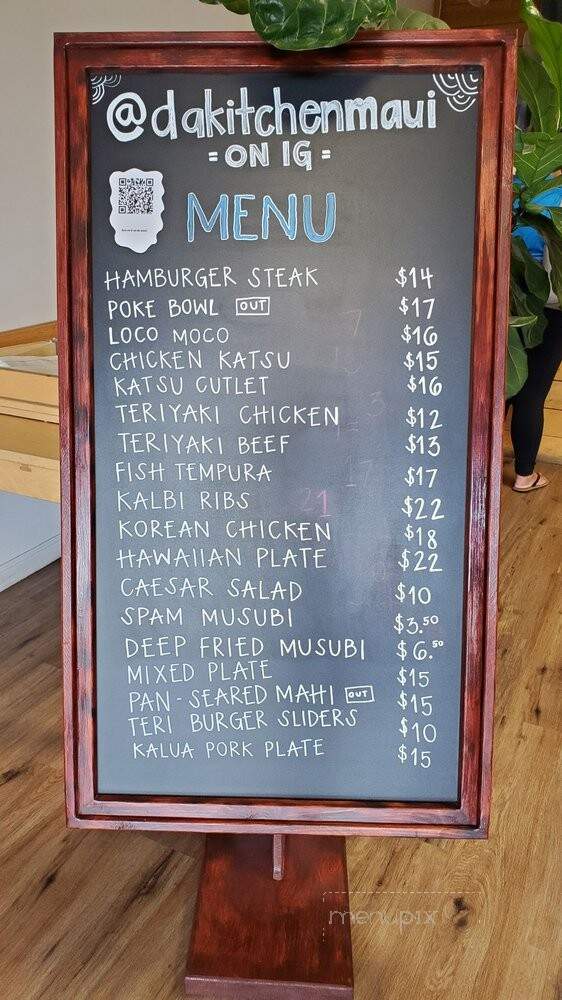 @dakitchenmaui
= ON IG =
MENU
HAMBURGER STEAK $14
POKE BOWL OUT $17
LOCO MOCO $16
CHICKEN KATSU $15
KATSU CUTLET $16
TERIYAKI CHICKEN $12
TERIYAKI BEEF $13
FISH TEMPURA $17
KALBI RIBS $22
KOREAN CHICKEN $18
HAWAIIAN PLATE $22
CAESAR SALAD $10
SPAM MUSUBI $3.50
DEEP FRIED MUSUBI $6.50
MIXED PLATE $15
PAN-SEARED MAHI OUT $15
TERI BURGER SLIDERS $10
KALUA PORK PLATE $15
menupix